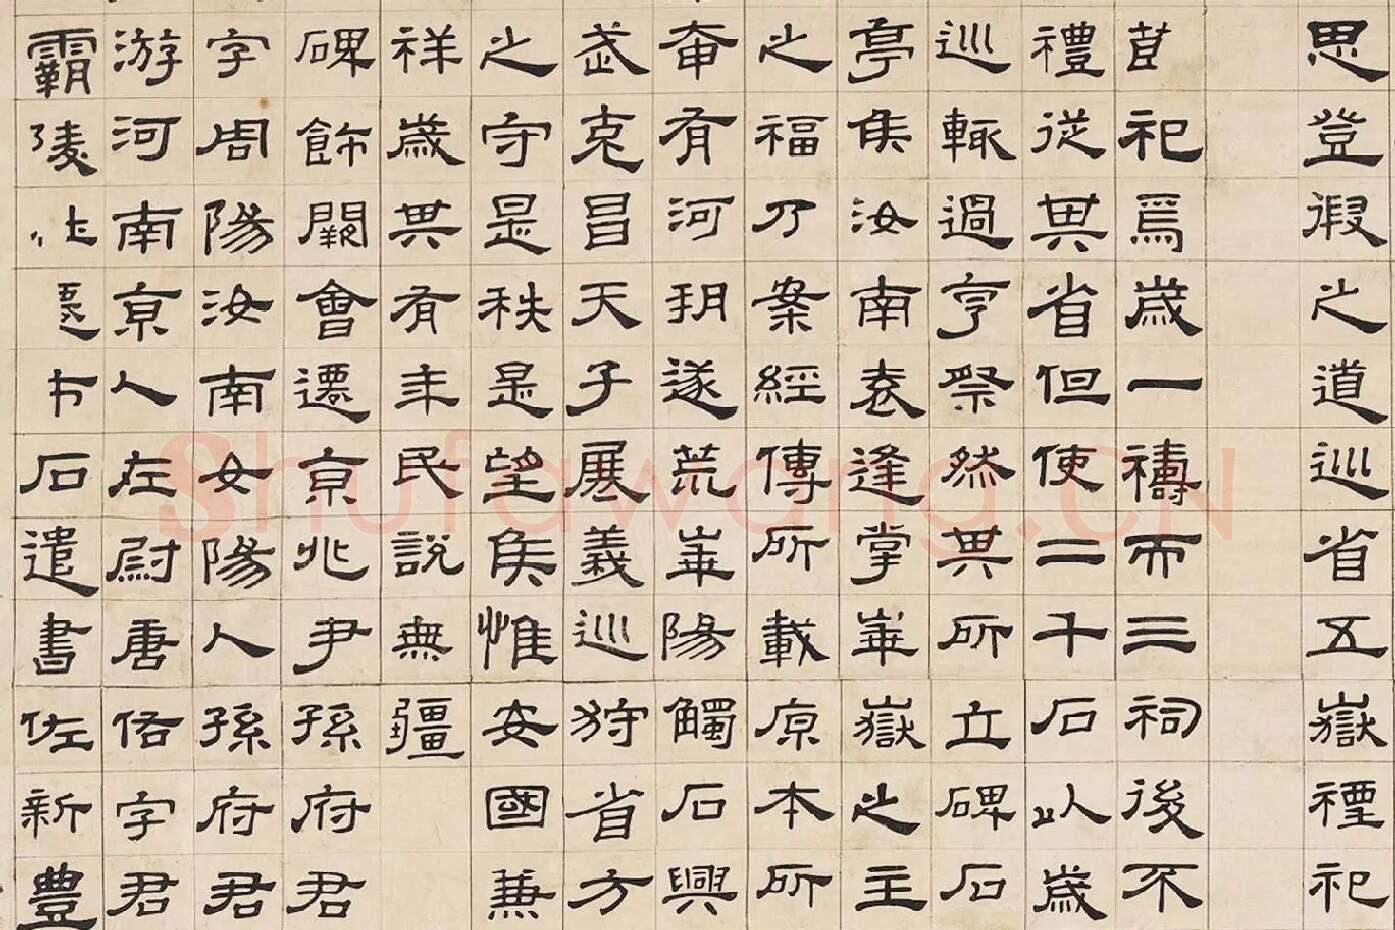 思登徦之道巡省五嶽禋祀
祀焉歲一禱而三祠後不
禮從其省但使二十石以歲
巡輒過亨祭然其所立碑石
亭矦汝南袁逢掌崋嶽之主
之福乃案經傳所載原本所
奄有河朔遂荒崋陽觸石興
武克昌天子展義巡狩省方
之守是秩是望矦惟安國兼
祥歲其有年民說無疆
碑飾闕會遷京兆尹孫府君
字周陽汝南女陽人孫府君
游河南京人左尉唐佑字君
霸陵 市石遣書佐新豐
Shufawang.CN